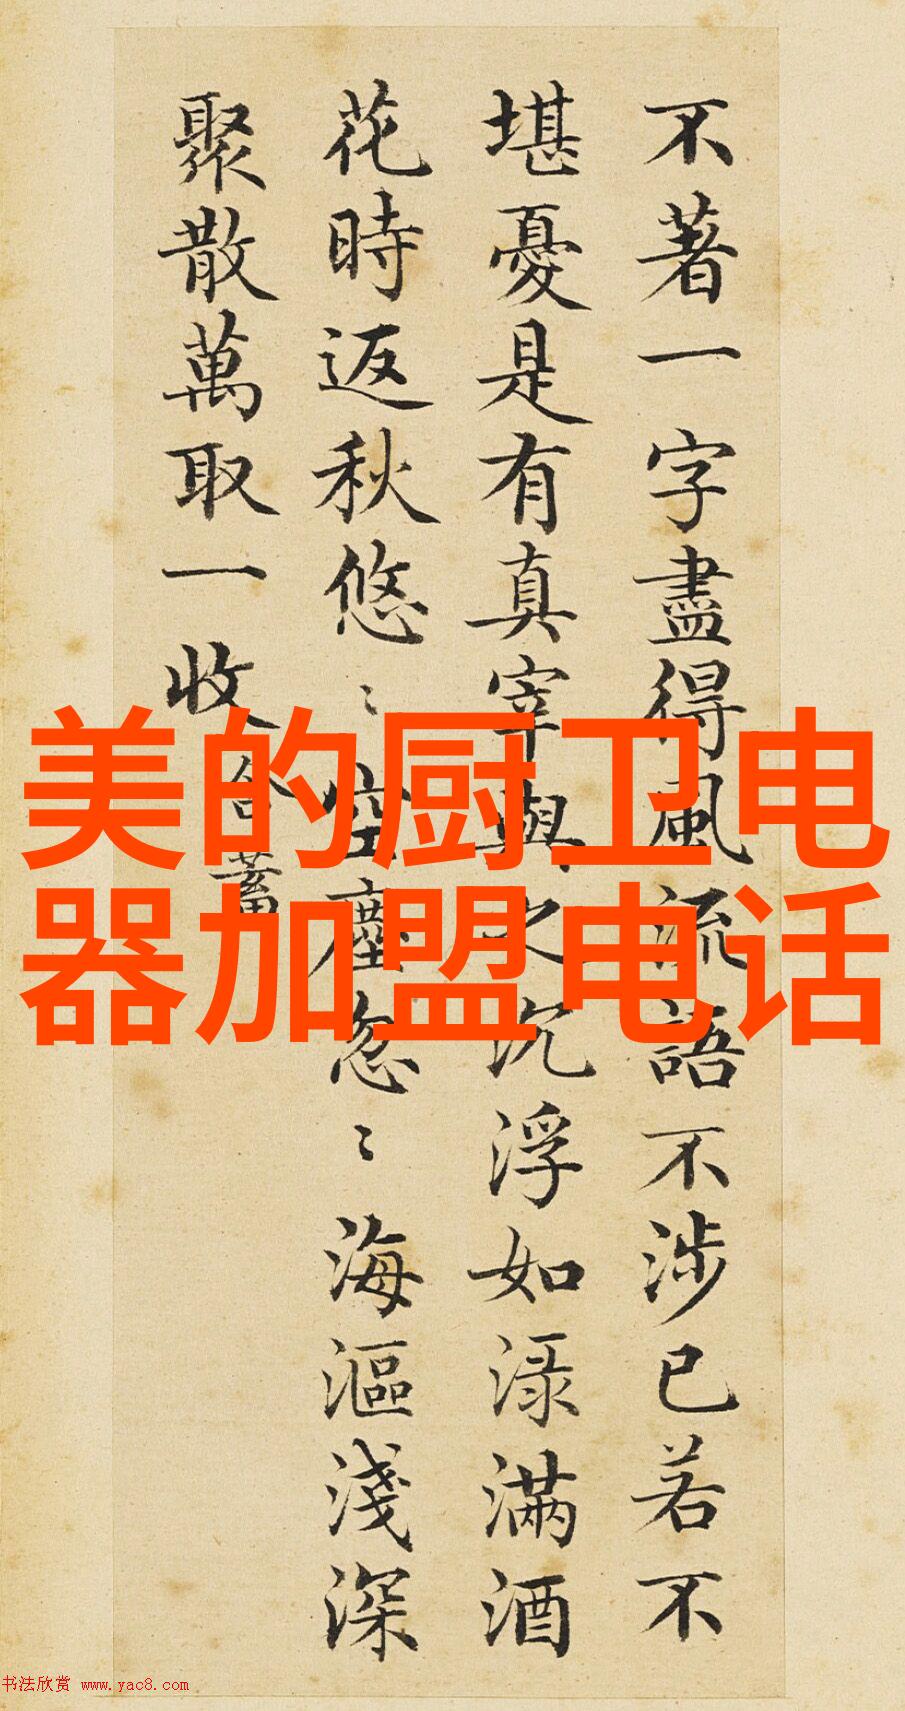 不著一字盡得風流語不涉已若不
堪憂是有真宰與之沉浮如淥滿酒
花時返秋悠〻空塵忽〻海漚淺深
聚散萬取一收含蓄
美的厨卫电
器加盟电话
书法欣赏 www.yac8.com